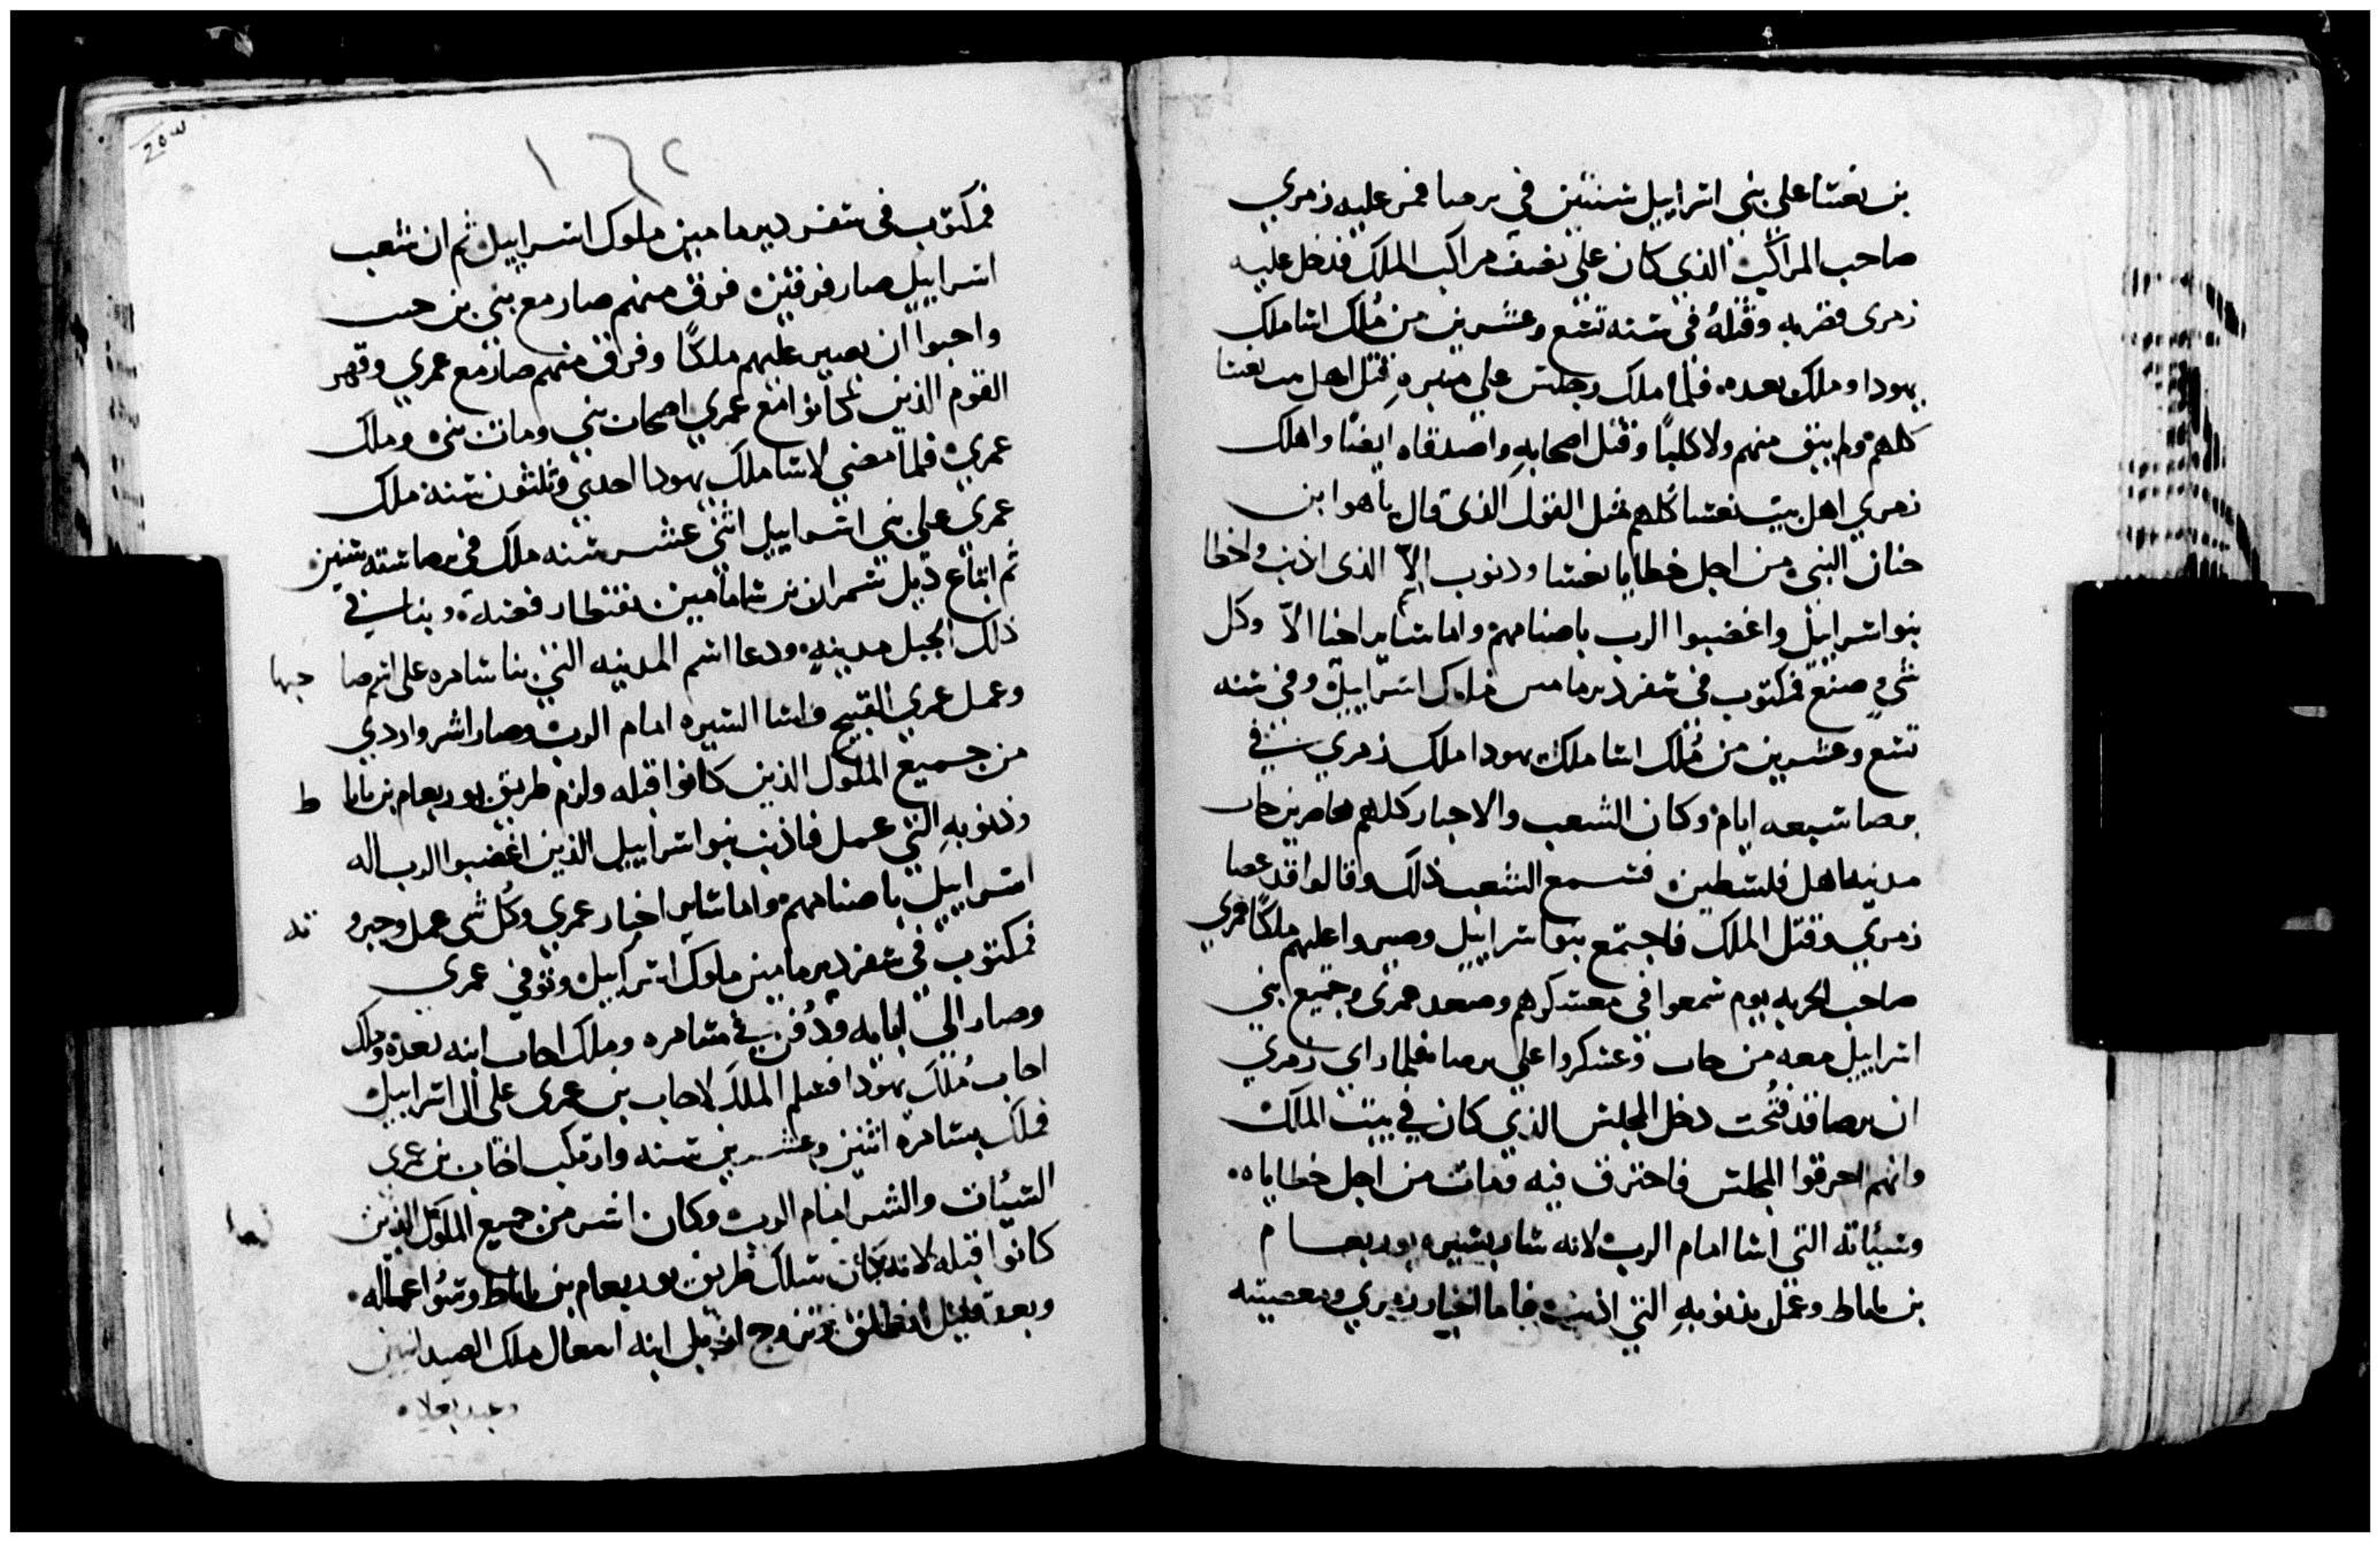 بن بغشا علي بني اسراييل سنتين في برصا فمر عليه زمري
صاحب المراكب الذي كان علي نصف مراكب الملك فدخل عليه
زمري فضربه وقتله في سنه تسع وعشرين من ملك اسا ملك
يهودا وملك بعده فلما ملك وجلس علي منبره قتل اهل بيت بغشا
كلهم ولم يبق منهم ولا كلبا وقتل اصحابه واصدقاه ايضا واهلك
زمري اهل بيت بغشا كلهم مثل القول الذي قال ياهوا بن
حنان النبي من اجل خطايا بغشا وذنوب الا الذي اذنب واخطا
بنو اسراييل واغضبوا الرب باصنامهم واما ساير اخبار الا وكل
شي صنع فمكتوب في سفر دبرمامين ملوك اسراييل وفي سنه
تسع وعشرين من ملك اسا ملك يهودا ملك زمري في
برصا سبعه ايام وكان الشعب والاحبار كلهم محاصرين حاب
مدينه اهل فلسطين فسمع الشعب ذلك وقالوا قد عصا
زمري وقتل الملك فاجتمع بنو اسراييل وصيروا عليهم ملكا عمري
صاحب الحربه يوم سمعوا في معسكرهم وصعد عمري وجميع بني
اسراييل معه من حاب وعسكروا علي برصا فلما راي زمري
ان برصا قد فتحت دخل المجلس الذي كان في بيت الملك
وانهم احرقوا المجلس فاحترق فيه فمات من اجل خطاياه
وسيئاته التي اسا امام الرب لانه سار بسيره يوربعام
بن ناباط وعمل بذنوبه التي اذنب فاما اخبار زمري ومعصيته
١٦٢
فمكتوب في سفر دبرمامين ملوك اسراييل ثم ان شعب
اسراييل صار فرقتين فرق منهم صار مع بني بن حب
واحبوا ان يصير عليهم ملكا وفرق منهم صار مع عمري وقهر
القوم الذين كانوا مع عمري اصحاب بني ومات بني وملك
عمري فلما مضي لاسا ملك يهودا احدي وثلثون سنه ملك
عمري علي بني اسراييل اثني عشر سنه ملك في برصا سته سنين
ثم ابتاع دبل شمران من شامامين بقنطار فضه وبنا في
ذلك الجبل مدينه ودعا اسم المدينه التي بنا شامره علي اسم صا حبها
وعمل عمري القبيح واسا السيره امام الرب وصار اشر واردي
من جميع الملوك الذين كانوا قبله ولزم طريق يوربعام بن ناباط
وذنوبه التي عمل فاذنب بنو اسراييل الذين اغضبوا الرب اله
اسراييل باصنامهم واما ساير اخبار عمري وكل شي عمل وجبرو ته
فمكتوب في سفر دبرمامين ملوك اسراييل وتوفي عمري
وصار الي ابايه ودفن في شامره وملك احاب ابنه بعده وملك
احاب ملك يهودا فسلم الملك لاحاب بن عمري علي ال اسراييل
فملك بشامره اثنين وعشرين سنه وارتكب احاب بن عمري
السيئات والشر امام الرب وكان اشر من جميع الملوك الذين
كانوا قبله لانه كان سلك طريق يوربعام بن ناباط وسو اعماله
وبعد قليل انطلق وتزوج ازبل ابنه ملك الصيدانيين
وعبد بعلا